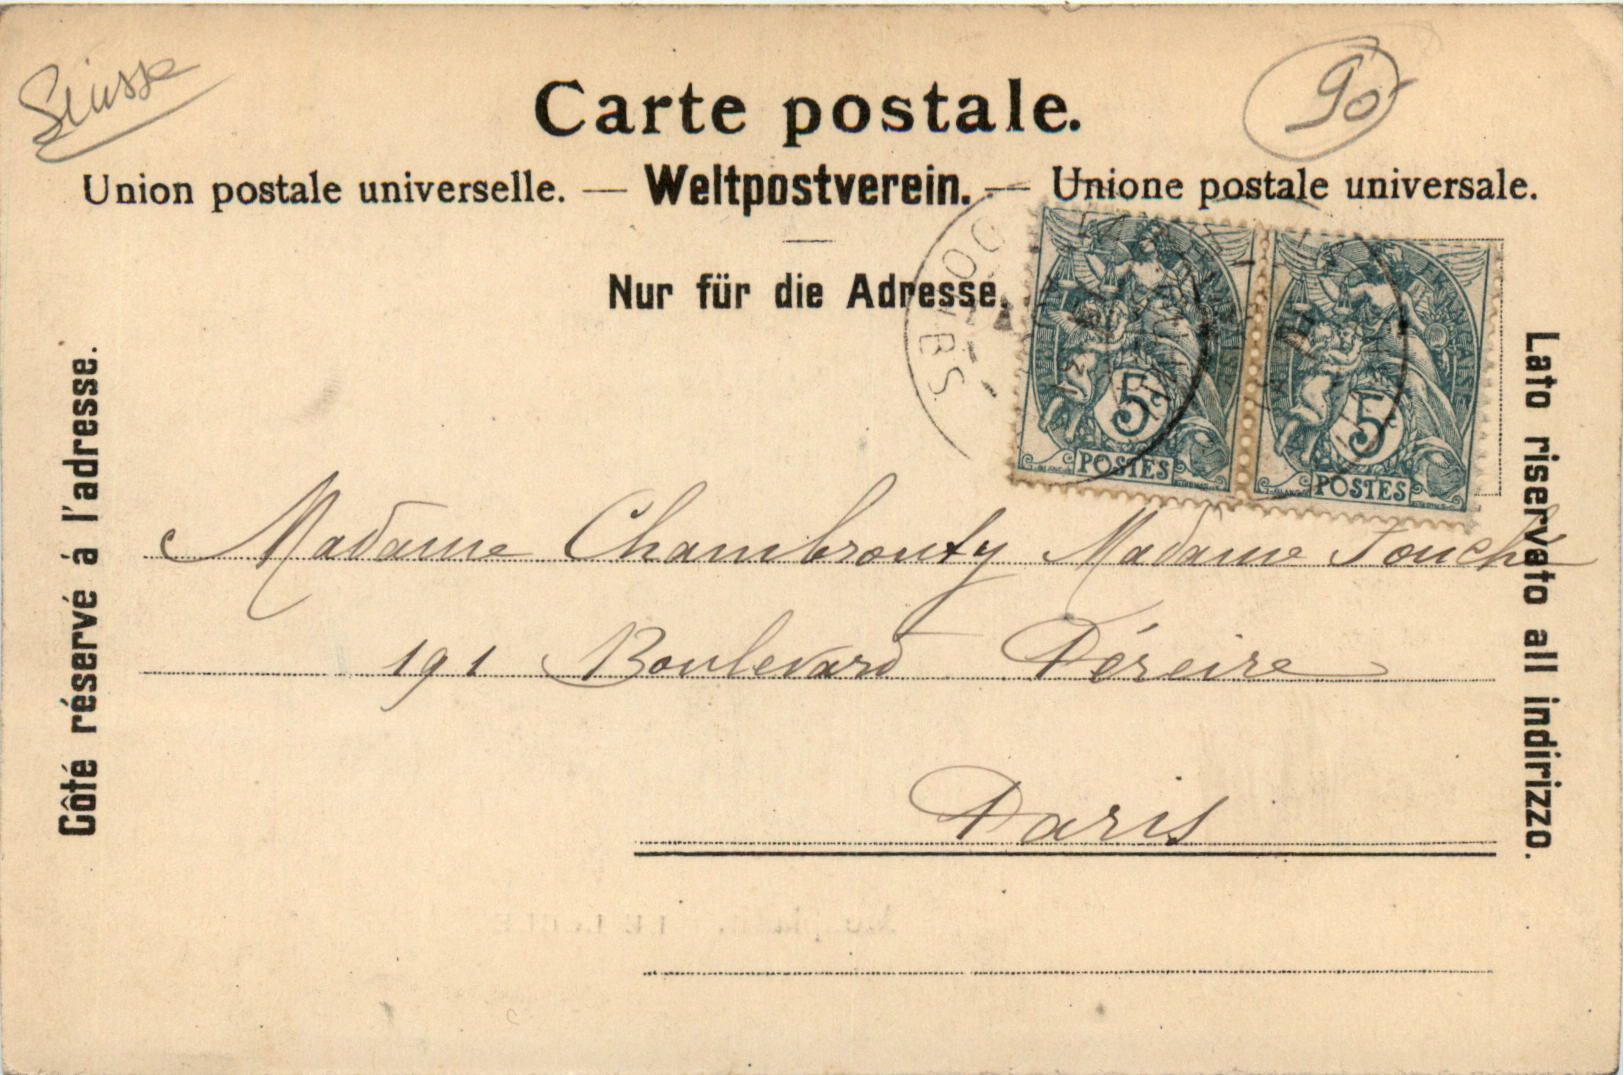 Suisse
90
Carte postale.
Union postale universelle. — Weltpostverein. — Unione postale universale.
Nur für die Adresse.
Côté réservé à l'adresse.
Lato riservato all indirizzo.
5
POSTES
5
POSTES
Madame Chambrouty Madame Fouché
191 Boulevard Péreire
Paris